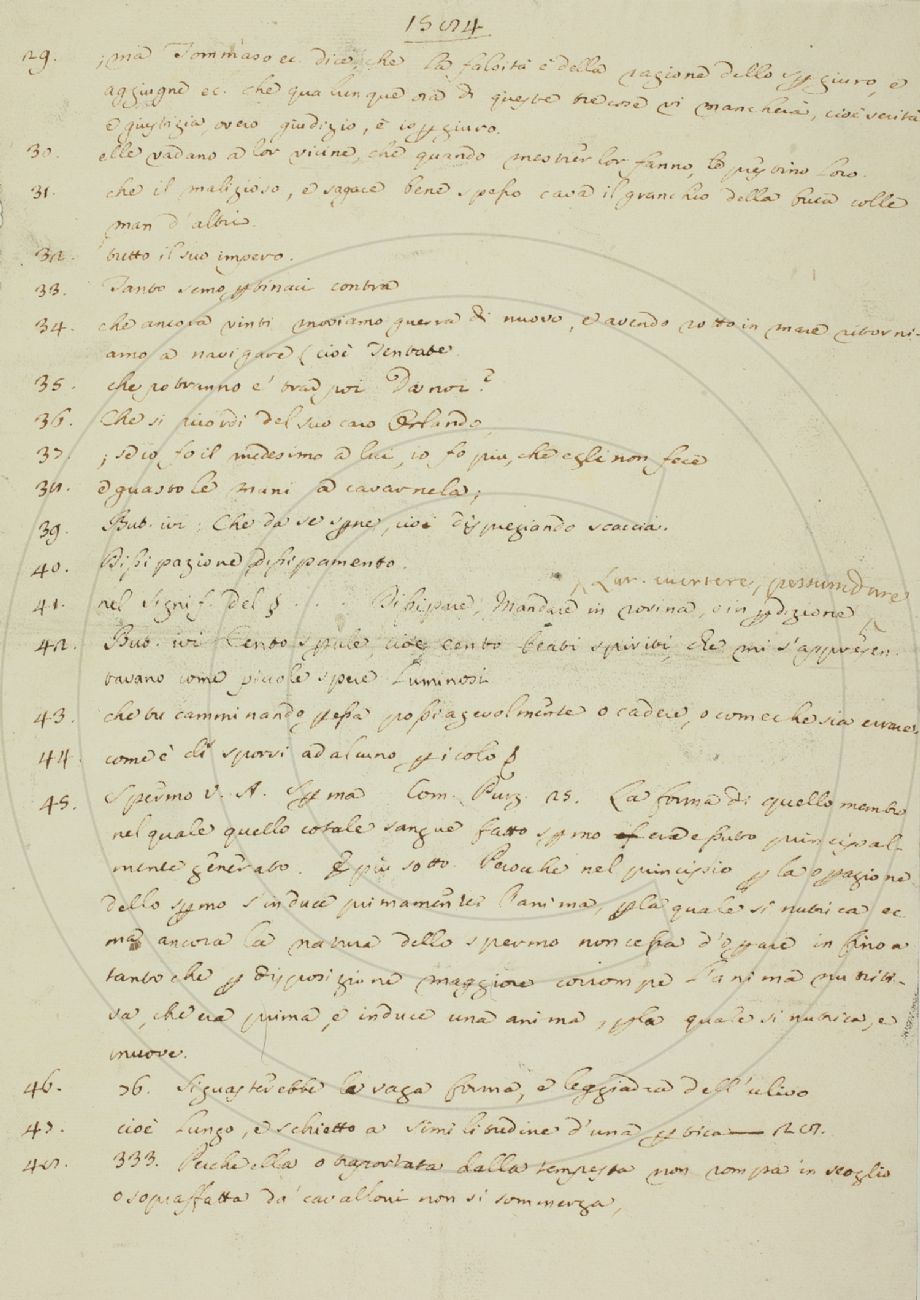 1584
29. ; ma Tommaso ec. dice, che la falsità è della ragione dello sꝑgiuro, e
aggiugne ec. che qualunque ora di queste tre cose vi mancherà, cioè verità
e giustizia, overo giudizio, è isꝑgiuro.
30. elle vadano a lor vicine, che quando mestier lor fanno, le prestino loro.
31. che il malizioso, e sagace bene spesso cava il granchio della buca colle
man d'altri.
32. tutto il suo impero.
33. Tanto semo ꝑtinaci contra
34. che ancora vinti moviamo guerra di nuovo, e avendo rotto in mare ritorni-
amo a navigare (cioè Tentate.
35. che potranno e' trar poi Da noi?
36. Che si ricordi del suo caro Orlando,
37. ; sed io fo il medesimo a lui, io fo piu, che egli non fece
38. e guasto le mani a cavarnela;
39. But. ivi: Che da se spne, cioè dispregiando scaccia.
40. Dissipazione dissipamento.
/ Lat. evertere, pessumdare
41. nel signif. del § . . . Dissipare, Mandare in rovina, e in ꝑdizione
42. But. ivi Cento spule cioè cento beati spiriti, che mi s'appresen
tavano come piccole spere luminosi
43. che tu camminando ꝑ essa possi agevolmente o cadere, o comechesia errare.
44. come è di sporsi ad alcuno ꝑicolo §
45. Spermo V. A. Sꝑma Com. Purg. 25. La forma di quello membro
nel quale quello cotale sangue fatto sꝑmo era essuto principal-
mente generato. E più sotto. Perocche nel principio ꝑ la oꝑazione
dello sꝑmo s'induce primamente l'anima, ꝑ la quale si nutrica ec.
ma ancora la natura dello spermo non cessa d'oꝑare in fino a
tanto che ꝑ disposizione maggiore corrompe l'anima nutriti-
va, che era prima, e induce una anima, ꝑ la quale si nutrica, e
muove.
46. 76. Si guasterebbe la vaga forma, e leggiadra dell'ulivo
47. cioè lungo, e schietto a similitudine d'una ꝑtica — 28.
48. 333. Perche ella o trasportata dalla tempesta non rompa in scoglio
o sopraffatta da' cavalloni non si sommerga,